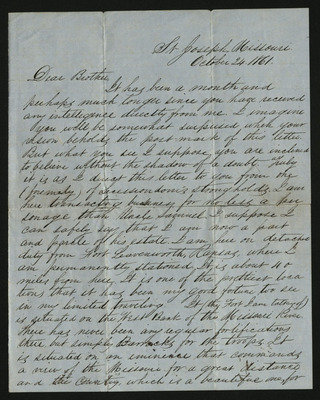 St Joseph, Missouri
October 24, 1861.
Dear Brother
It has been a month and
perhaps much longer since you have received
any intelligence directly from me. I imagine
you will be somewhat surprised when your
vision beholds the post mark of this letter
But what you see I suppose you are inclined
to believe without the shadow of a doubt. Truly
it is as I direct this letter to you from one
(formerly) of secessiondom's strongholds. I am
here transacting business for no less a per
sonage than Uncle Samuel. I suppose I
can safely say that I am now a part
and parcel of his estate. I am here on detached
duty from Fort Leavenworth, Kansas, where I
am permanently stationed. It is about 40
miles from here. It is one of the prettiest loca
tions that it has been my good fortune to see
in my limited traveling. It (the Fort I am talking of)
is situated on the West Bank of the Missouri River.
There has never been any regular fortifications
there but simply Barracks for the troops. It
is situated on an eminence that commands
a view of the Missouri for a great distance
and the Country, which is a beautiful one, for